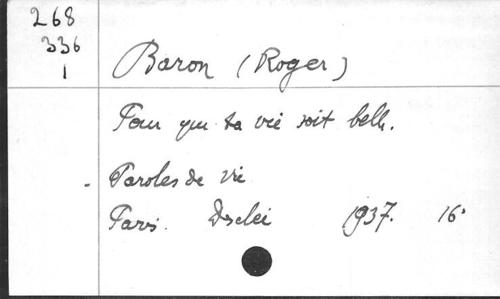 268
336
1
Baron (Roger)
Pour que ta vie soit belle.
- Paroles de vie
Paris. Desclée 1937. 16°